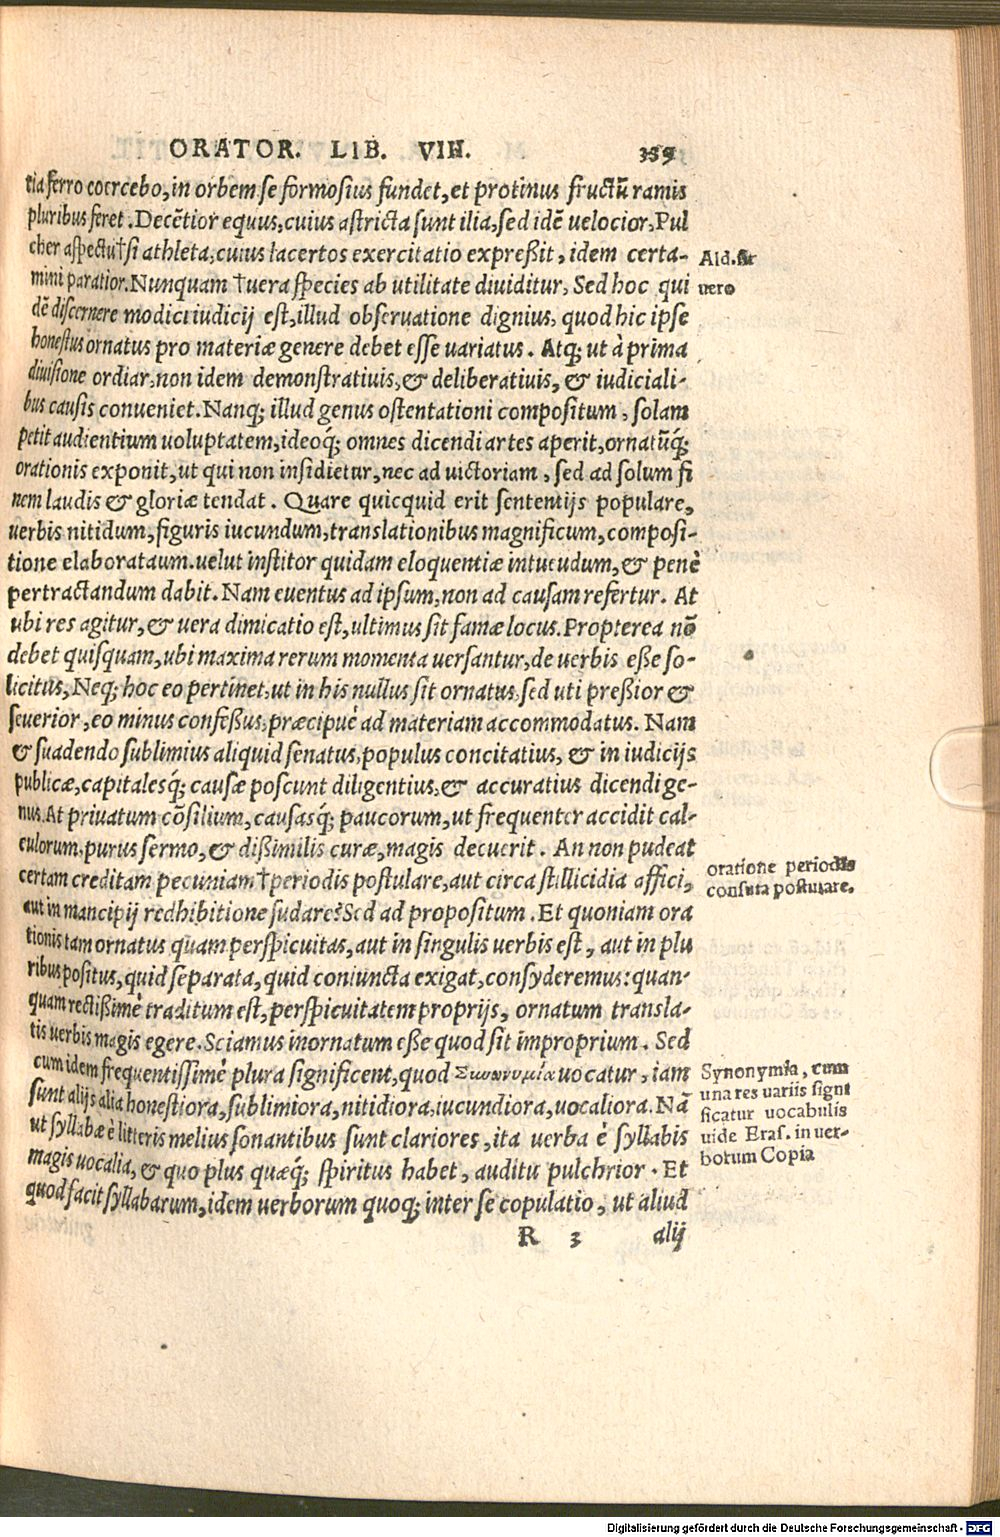 ORATOR. LIB. VIII. 359
tia ferro coercebo, in orbem se formosius fundet, et protinus fructū ramis
pluribus feret. Decētior equus, cuius astricta sunt ilia, sed idē uelocior. Pul
cher aspectu† si athleta, cuius lacertos exercitatio expreßit, idem certa-
mini paratior. Nunquam † uera species ab utilitate diuiditur, Sed hoc qui
dē discernere modici iudicij est, illud obseruatione dignius, quod hic ipse
honestus ornatus pro materiæ genere debet esse uariatus. Atq; ut à prima
diuisione ordiar, non idem demonstratiuis, & deliberatiuis, & iudiciali-
bus causis conueniet. Nanq; illud genus ostentationi compositum, solam
petit audientium uoluptatem, ideoq́; omnes dicendi artes aperit, ornatūq́;
orationis exponit, ut qui non insidietur, nec ad uictoriam, sed ad solum fi
nem laudis & gloriæ tendat. Quare quicquid erit sententijs populare,
uerbis nitidum, figuris iucundum, translationibus magnificum, composi-
tione elaborataum. uelut institor quidam eloquentiæ intuendum, & penè
pertractandum dabit. Nam euentus ad ipsum, non ad causam refertur. At
ubi res agitur, & uera dimicatio est, ultimus sit famæ locus. Propterea nō
debet quisquam, ubi maxima rerum momenta uersantur, de uerbis eße so-
licitus, Neq; hoc eo pertinet, ut in his nullus sit ornatus, sed uti preßior &
seuerior, eo minus confeßus, præcipuè ad materiam accommodatus. Nam
& suadendo sublimius aliquid senatus, populus concitatius, & in iudicijs
publicæ, capitalesq́; causæ poscunt diligentius, & accuratius dicendi ge-
nus. At priuatum cōsilium, causasq́; paucorum, ut frequenter accidit cal-
culorum, purus sermo, & dißimilis curæ, magis decuerit. An non pudeat
certam creditam pecuniam † periodis postulare, aut circa stillicidia affici,
aut in mancipij redhibitione sudare? Sed ad propositum. Et quoniam ora
tionis tam ornatus quam perspicuitas, aut in singulis uerbis est, aut in plu
ribus positus, quid separata, quid coniuncta exigat, consyderemus: quan-
quam rectißimè traditum est, perspicuitatem proprijs, ornatum transla-
tis uerbis magis egere. Sciamus inornatum eße quod sit improprium. Sed
cum idem frequentissimè plura significent, quod Συνωνυμία uocatur, iam
sunt alijs alia honestiora, sublimiora, nitidiora, iucundiora, uocaliora. Nā
ut syllabæ è litteris melius sonantibus sunt clariores, ita uerba è syllabis
magis uocalia, & quo plus quæq́; spiritus habet, auditu pulchrior. Et
quod facit syllabarum, idem uerborum quoq; inter se copulatio, ut aliud
R 3 alij
Ald. fit
uero
oratione periodis
consuta postulare.
Synonymia, cum
una res variis signi
ficatur vocabulis
uide Eras. in uer-
borum Copia
Digitalisierung gefördert durch die Deutsche Forschungsgemeinschaft - DFG